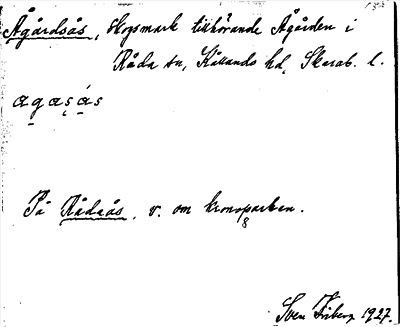 Ågårdsås, skogsmark tillhörande Ågården i
Råda sn, Kållands hd, Skarab. l.
agasås
På Rådaås, v. om kronoparken.
Sven Friberg 1927.